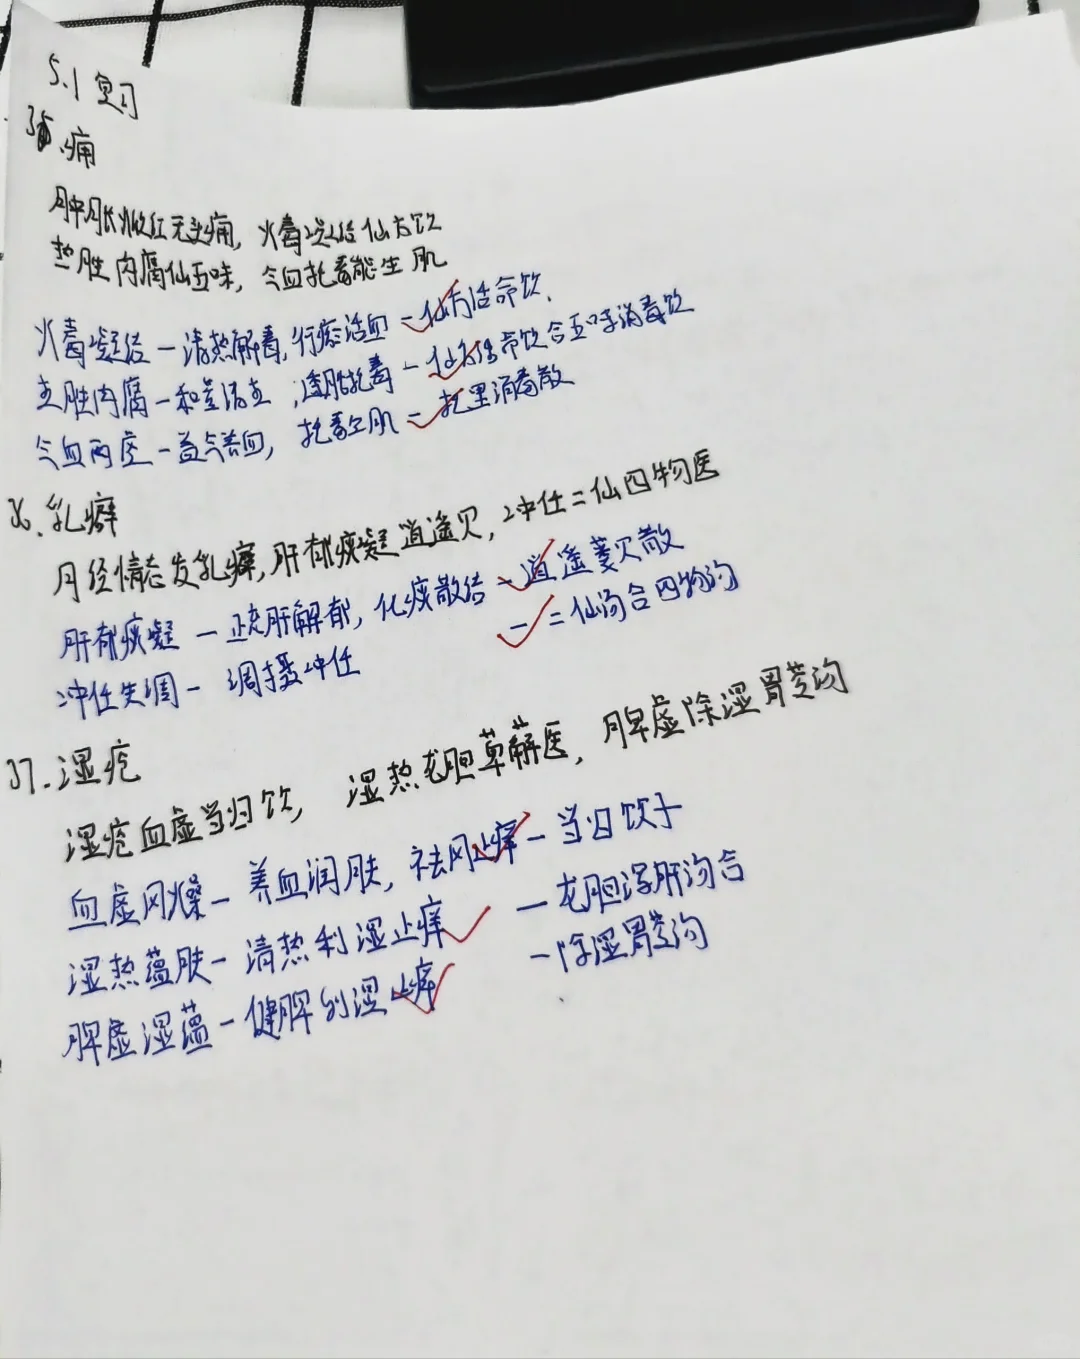 5.1 复习
痈
肿胀焮红无头痛, 火毒凝结仙方饮
热胜肉腐仙五味, 气血托毒能生肌
火毒凝结 - 清热解毒, 行瘀活血 - 仙方活命饮.
热胜肉腐 - 和营清热, 透脓托毒 - 仙方活命饮合五味消毒饮
气血两虚 - 益气养血, 托毒生肌 - 托里消毒散
36. 乳癖
月经情志发乳癖, 肝郁痰凝逍遥贝, 冲任二仙四物医
肝郁痰凝 - 疏肝解郁, 化痰散结 - 逍遥蒌贝散
冲任失调 - 调摄冲任 - 二仙汤合四物汤
37. 湿疮
湿疮血虚当归饮, 湿热龙胆萆薢医, 脾虚除湿胃苓汤
血虚风燥 - 养血润肤, 祛风止痒 - 当归饮子
湿热蕴肤 - 清热利湿止痒 - 龙胆泻肝汤合
脾虚湿蕴 - 健脾利湿止痒 - 除湿胃苓汤